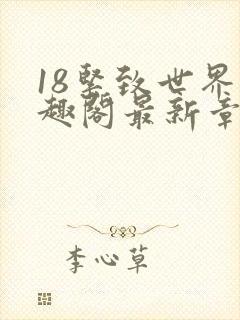 18坚致世界
趣阁最新章
李心草